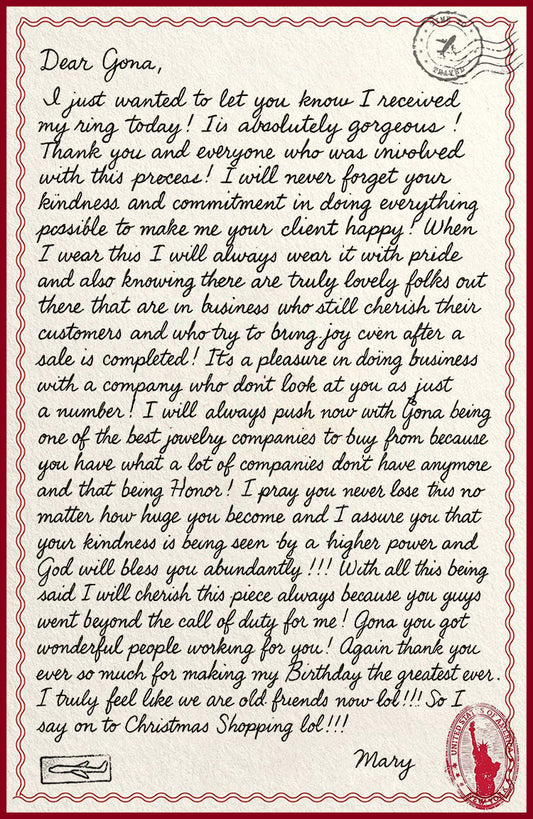 Dear Gona,
I just wanted to let you know I received
my ring today! Iis absolutely gorgeous!
Thank you and everyone who was involved
with this process! I will never forget your
kindness and commitment in doing everything
possible to make me your client happy! When
I wear this I will always wear it with pride
and also knowing there are truly lovely folks out
there that are in business who still cherish their
customers and who try to bring joy even after a
sale is completed! It's a pleasure in doing business
with a company who don't look at you as just
a number! I will always push now with Gona being
one of the best jewelry companies to buy from because
you have what a lot of companies don't have anymore
and that being Honor! I pray you never lose this no
matter how huge you become and I assure you that
your kindness is being seen by a higher power and
God will bless you abundantly!!! With all this being
said I will cherish this piece always because you guys
went beyond the call of duty for me! Gona you got
wonderful people working for you! Again thank you
ever so much for making my Birthday the greatest ever.
I truly feel like we are old friends now lol!!! So I
say on to Christmas Shopping lol!!!
Mary
TRAVEL
UNITED STATES OF AMERICA
NEW YORK